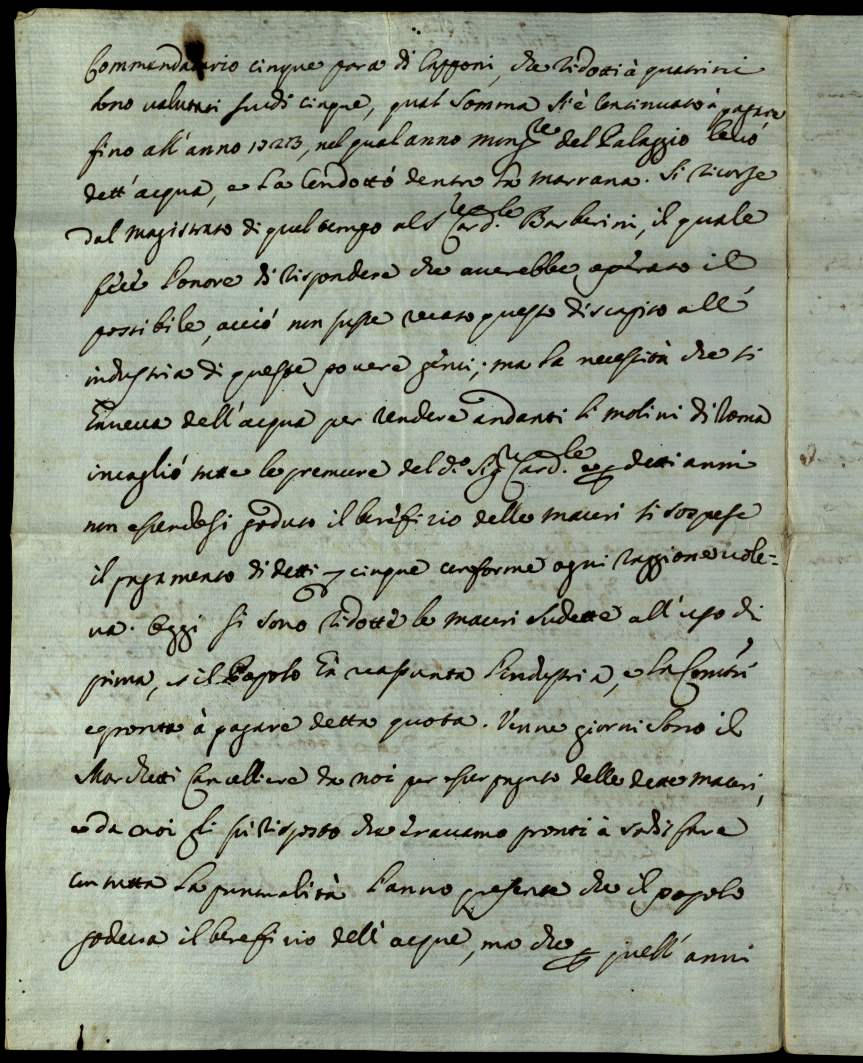 Commendatario cinque para di Capponi, che ridotti à quatrini
sono valutati scudi cinque, qual somma si è continuato à pagare
fino all'anno 1723, nel qual anno Mons.re del Palazzo levò
dett'acqua, e la condottò dentro la marrana. Si ricorse
dal magistrato di quel tempo al S.re Card.le Barberini, il quale
fece l'onore di rispondere che averebbe operato il
possibile, acciò non fusse recato questo discapito all'
industria di queste povere genti; ma la necessità che si
haveva dell'acqua per rendere andanti li molini di Roma
incagliò tutte le premure del d.o Sig.r Card.le e p detti anni
non essendosi goduto il beneficio delle maceri si sospese
il pagamento di detti cinque conforme ogni raggione vole=
va. Oggi si sono ridotte le maceri sudette all'uso di
prima, e il Popolo hà reassunta l'industria, e la Com.tà
e pronta à pagare detta quota. Venne giorni sono il
Marchetti Cancelliere da noi per esser pagato delle dette maceri,
e da noi fu risposto che eravamo pronti à sodisfare
con tutta la puntualità l'anno presente che il popolo
godeva il beneficio dell'acque, ma che p quell'anni